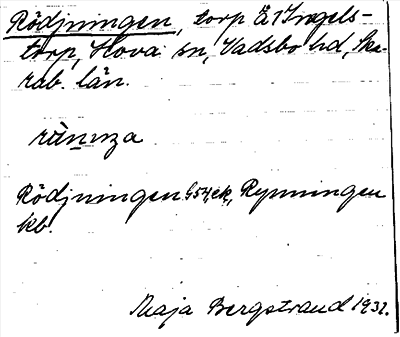 Rödjningen, torp Å 1 Ingels-
torp, Hova sn, Vadsbo hd, Ska-
rab. län.
Rödjningen G 54, ek, Rynningen
kb.
Maja Bergstrand 1931.